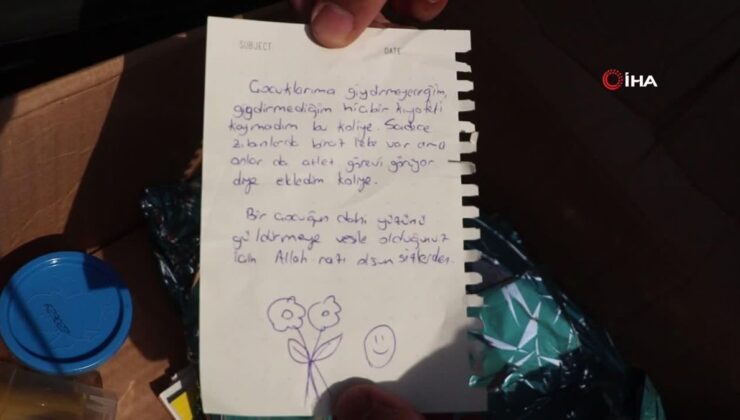 SUBJECT
DATE
İHA
Çocuklarıma giydirmeyeceğim,
giydirmediğim hiçbir kıyafeti
koymadım bu koliye. Sadece
zıbınlarda biraz leke var ama
onlar da atlet görevi görüyor
diye ekledim koliye.
Bir çocuğun dahi yüzünü
güldürmeye vesile olduğunuz
için Allah razı olsun sizlerden.